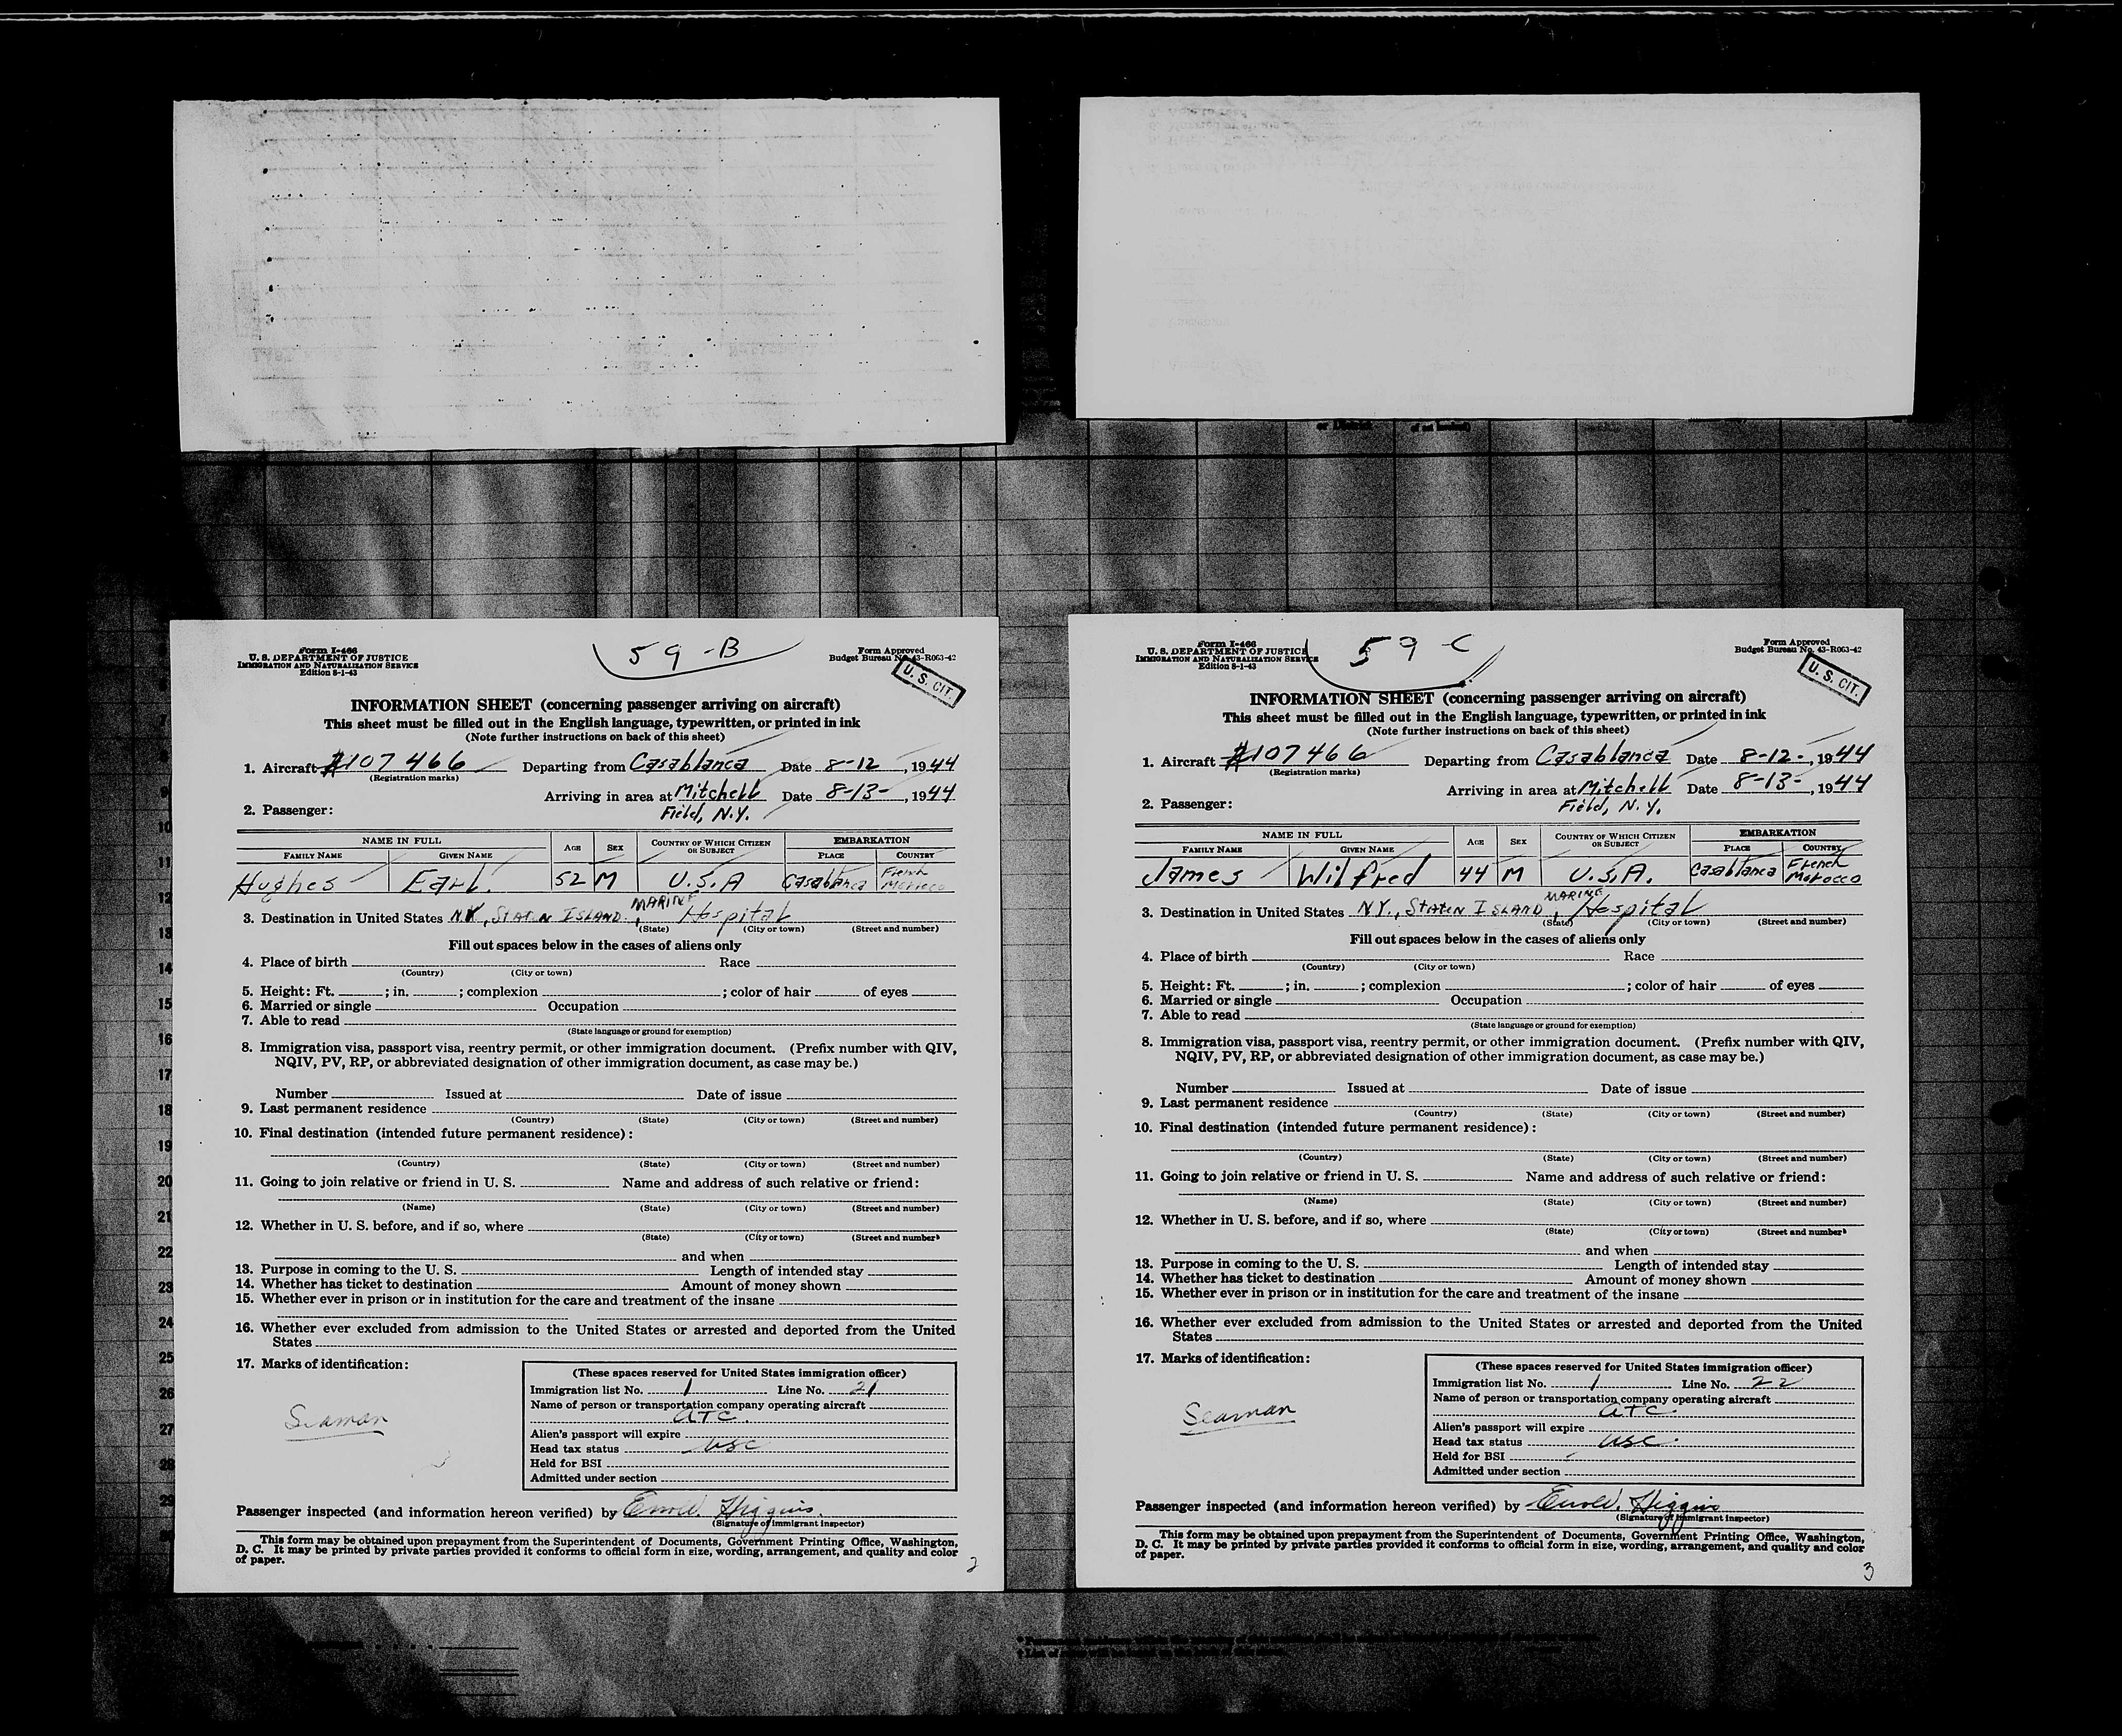 Form I-466
U. S. DEPARTMENT OF JUSTICE
IMMIGRATION AND NATURALIZATION SERVICE
Edition 8-1-43
59-B
Form Approved
Budget Bureau No. 43-R063-42
U. S. CIT.
INFORMATION SHEET (concerning passenger arriving on aircraft)
This sheet must be filled out in the English language, typewritten, or printed in ink
(Note further instructions on back of this sheet)
1. Aircraft #107466 Departing from Casablanca Date 8-12, 1944
(Registration marks)
Arriving in area at Mitchell Date 8-13-, 1944
2. Passenger: Field, N.Y.
NAME IN FULL AGE SEX COUNTRY OF WHICH CITIZEN OR SUBJECT EMBARKATION
FAMILY NAME GIVEN NAME PLACE COUNTRY
Hughes Earl. 52 M U.S.A Casablanca French Morocco
3. Destination in United States NY, STATEN ISLAND, MARINE Hospital
(State) (City or town) (Street and number)
Fill out spaces below in the cases of aliens only
4. Place of birth Race
(Country) (City or town)
5. Height: Ft. ; in. ; complexion ; color of hair of eyes
6. Married or single Occupation
7. Able to read
(State language or ground for exemption)
8. Immigration visa, passport visa, reentry permit, or other immigration document. (Prefix number with QIV,
NQIV, PV, RP, or abbreviated designation of other immigration document, as case may be.)
Number Issued at Date of issue
9. Last permanent residence
(Country) (State) (City or town) (Street and number)
10. Final destination (intended future permanent residence):
(Country) (State) (City or town) (Street and number)
11. Going to join relative or friend in U. S. Name and address of such relative or friend:
(Name) (State) (City or town) (Street and number)
12. Whether in U. S. before, and if so, where
(State) (City or town) (Street and number)
and when
13. Purpose in coming to the U. S. Length of intended stay
14. Whether has ticket to destination Amount of money shown
15. Whether ever in prison or in institution for the care and treatment of the insane
16. Whether ever excluded from admission to the United States or arrested and deported from the United
States
17. Marks of identification:
Seaman
(These spaces reserved for United States immigration officer)
Immigration list No. 1 Line No. 21
Name of person or transportation company operating aircraft
ATC
Alien's passport will expire
Head tax status USC
Held for BSI
Admitted under section
Passenger inspected (and information hereon verified) by Higgins
(Signature of immigrant inspector)
This form may be obtained upon prepayment from the Superintendent of Documents, Government Printing Office, Washington,
D. C. It may be printed by private parties provided it conforms to official form in size, wording, arrangement, and quality and color
of paper.
2
Form I-466
U. S. DEPARTMENT OF JUSTICE
IMMIGRATION AND NATURALIZATION SERVICE
Edition 8-1-43
59-C
Form Approved
Budget Bureau No. 43-R063-42
U. S. CIT.
INFORMATION SHEET (concerning passenger arriving on aircraft)
This sheet must be filled out in the English language, typewritten, or printed in ink
(Note further instructions on back of this sheet)
1. Aircraft #107466 Departing from Casablanca Date 8-12-, 1944
(Registration marks)
Arriving in area at Mitchell Date 8-13-, 1944
2. Passenger: Field, N.Y.
NAME IN FULL AGE SEX COUNTRY OF WHICH CITIZEN OR SUBJECT EMBARKATION
FAMILY NAME GIVEN NAME PLACE COUNTRY
James Wilfred 44 M U.S.A. Casablanca French Morocco
3. Destination in United States NY., STATEN ISLAND, MARINE Hospital
(State) (City or town) (Street and number)
Fill out spaces below in the cases of aliens only
4. Place of birth Race
(Country) (City or town)
5. Height: Ft. ; in. ; complexion ; color of hair of eyes
6. Married or single Occupation
7. Able to read
(State language or ground for exemption)
8. Immigration visa, passport visa, reentry permit, or other immigration document. (Prefix number with QIV,
NQIV, PV, RP, or abbreviated designation of other immigration document, as case may be.)
Number Issued at Date of issue
9. Last permanent residence
(Country) (State) (City or town) (Street and number)
10. Final destination (intended future permanent residence):
(Country) (State) (City or town) (Street and number)
11. Going to join relative or friend in U. S. Name and address of such relative or friend:
(Name) (State) (City or town) (Street and number)
12. Whether in U. S. before, and if so, where
(State) (City or town) (Street and number)
and when
13. Purpose in coming to the U. S. Length of intended stay
14. Whether has ticket to destination Amount of money shown
15. Whether ever in prison or in institution for the care and treatment of the insane
16. Whether ever excluded from admission to the United States or arrested and deported from the United
States
17. Marks of identification:
Seaman
(These spaces reserved for United States immigration officer)
Immigration list No. 1 Line No. 22
Name of person or transportation company operating aircraft
ATC
Alien's passport will expire
Head tax status USC
Held for BSI
Admitted under section
Passenger inspected (and information hereon verified) by Higgins
(Signature of immigrant inspector)
This form may be obtained upon prepayment from the Superintendent of Documents, Government Printing Office, Washington,
D. C. It may be printed by private parties provided it conforms to official form in size, wording, arrangement, and quality and color
of paper.
3